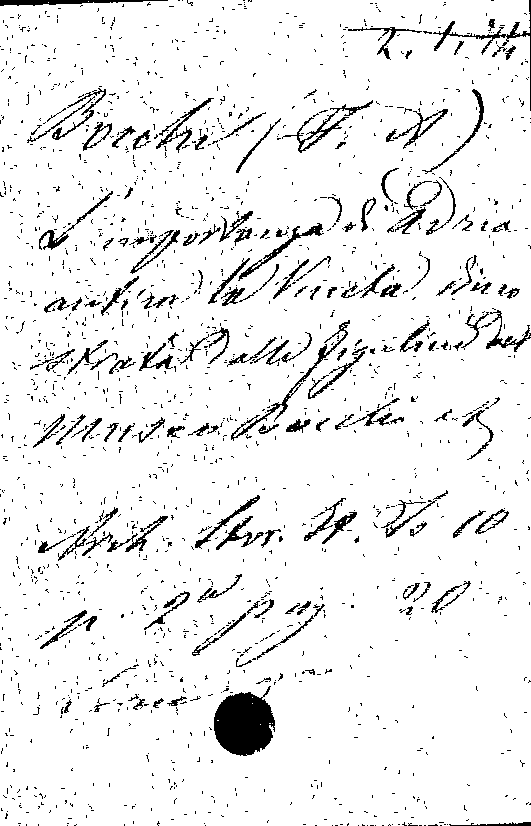 Bocchi (F. A)
L'importanza di Adria
antica la Veneta dimo
strata dalle figuline del
Museo Bocchi etc
Arch. Stor. It. Ts 10
p. 2a pag. 20